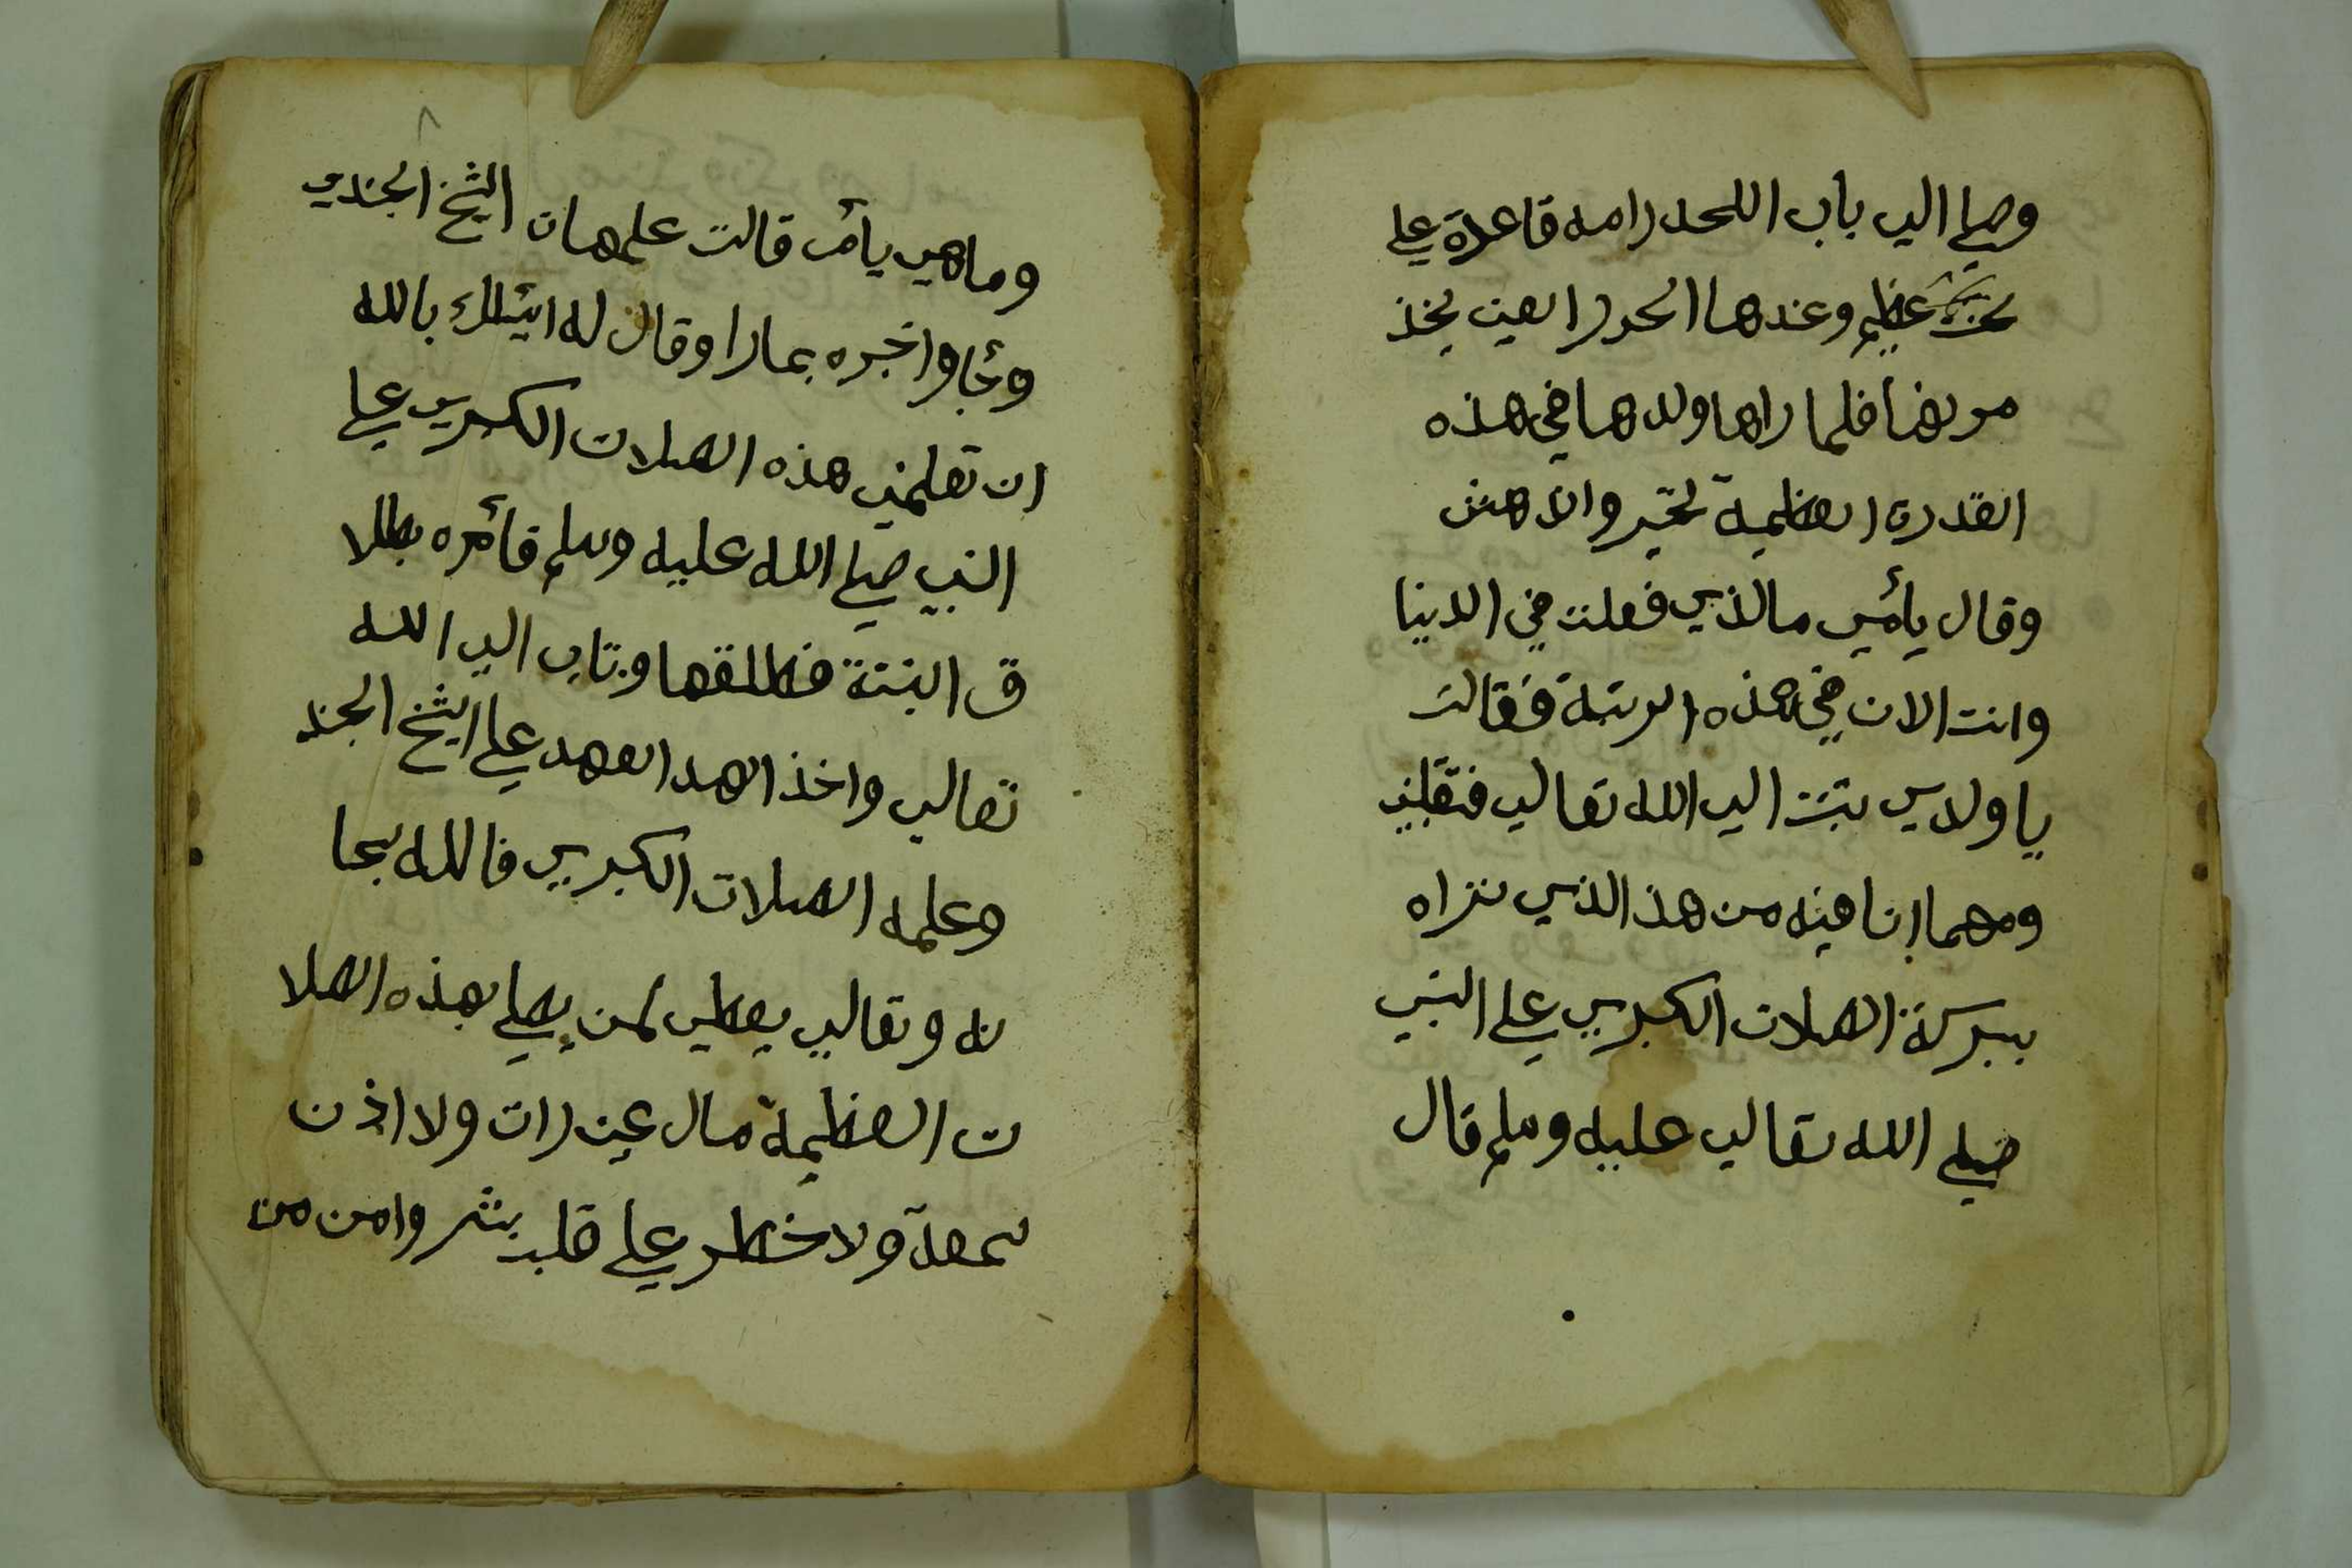 وصلي الي باب اللحد رامه قاعدة علي
عظيم وعندها الحور العين يخذ
مونها فلما راها ولدها في هذه
القدرة العظمية تحير واندهش
وقال يأمي مالذي فعلت في الدينا
وانت الان في هذه الرتبة فقالت
يا ولدي تبت الي الله تعالي فتقبلني
ومهما انا فيه من هذ الذي تراه
ببركة الصلات الكبري علي النبي
صلي الله تعالي عليه وسلم قال
٨
وماهي يأم قالت علمهان الشيخ الجندي
وجا واخبره بمارا وقال له اسئلك بالله
ان تعلمني هذه الصلات الكبري علي
النبي صلي الله عليه وسلم فأمره بطلا
ق البنتة فطلقها وتاب الي الله
تعالي واخذ العهد علي الشيخ الجند
وعلمه الصلات الكبري فالله سبحا
نه وتعالي يعطي لمن يصلي بهذه الصلا
ت العظيمة مال عين رات ولا اذن
سمعة ولا خطر علي قلب بشر وامن من